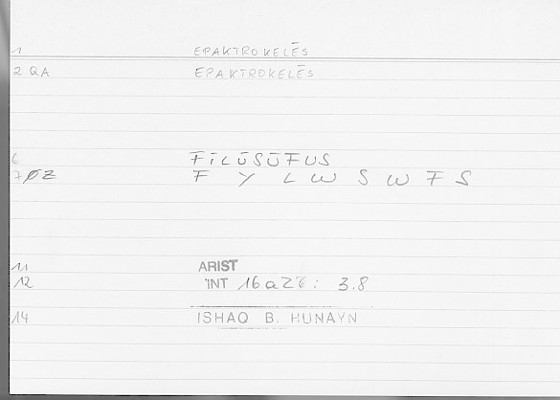 1 EPAKTROKELĒS
2 QA EPAKTROKELĒS
6 FĪLŪSŪFUS
7 ØZ F Y L W S W F S
11 ARIST
12 'INT 16a26: 3.8
14 ISHAQ B. HUNAYN